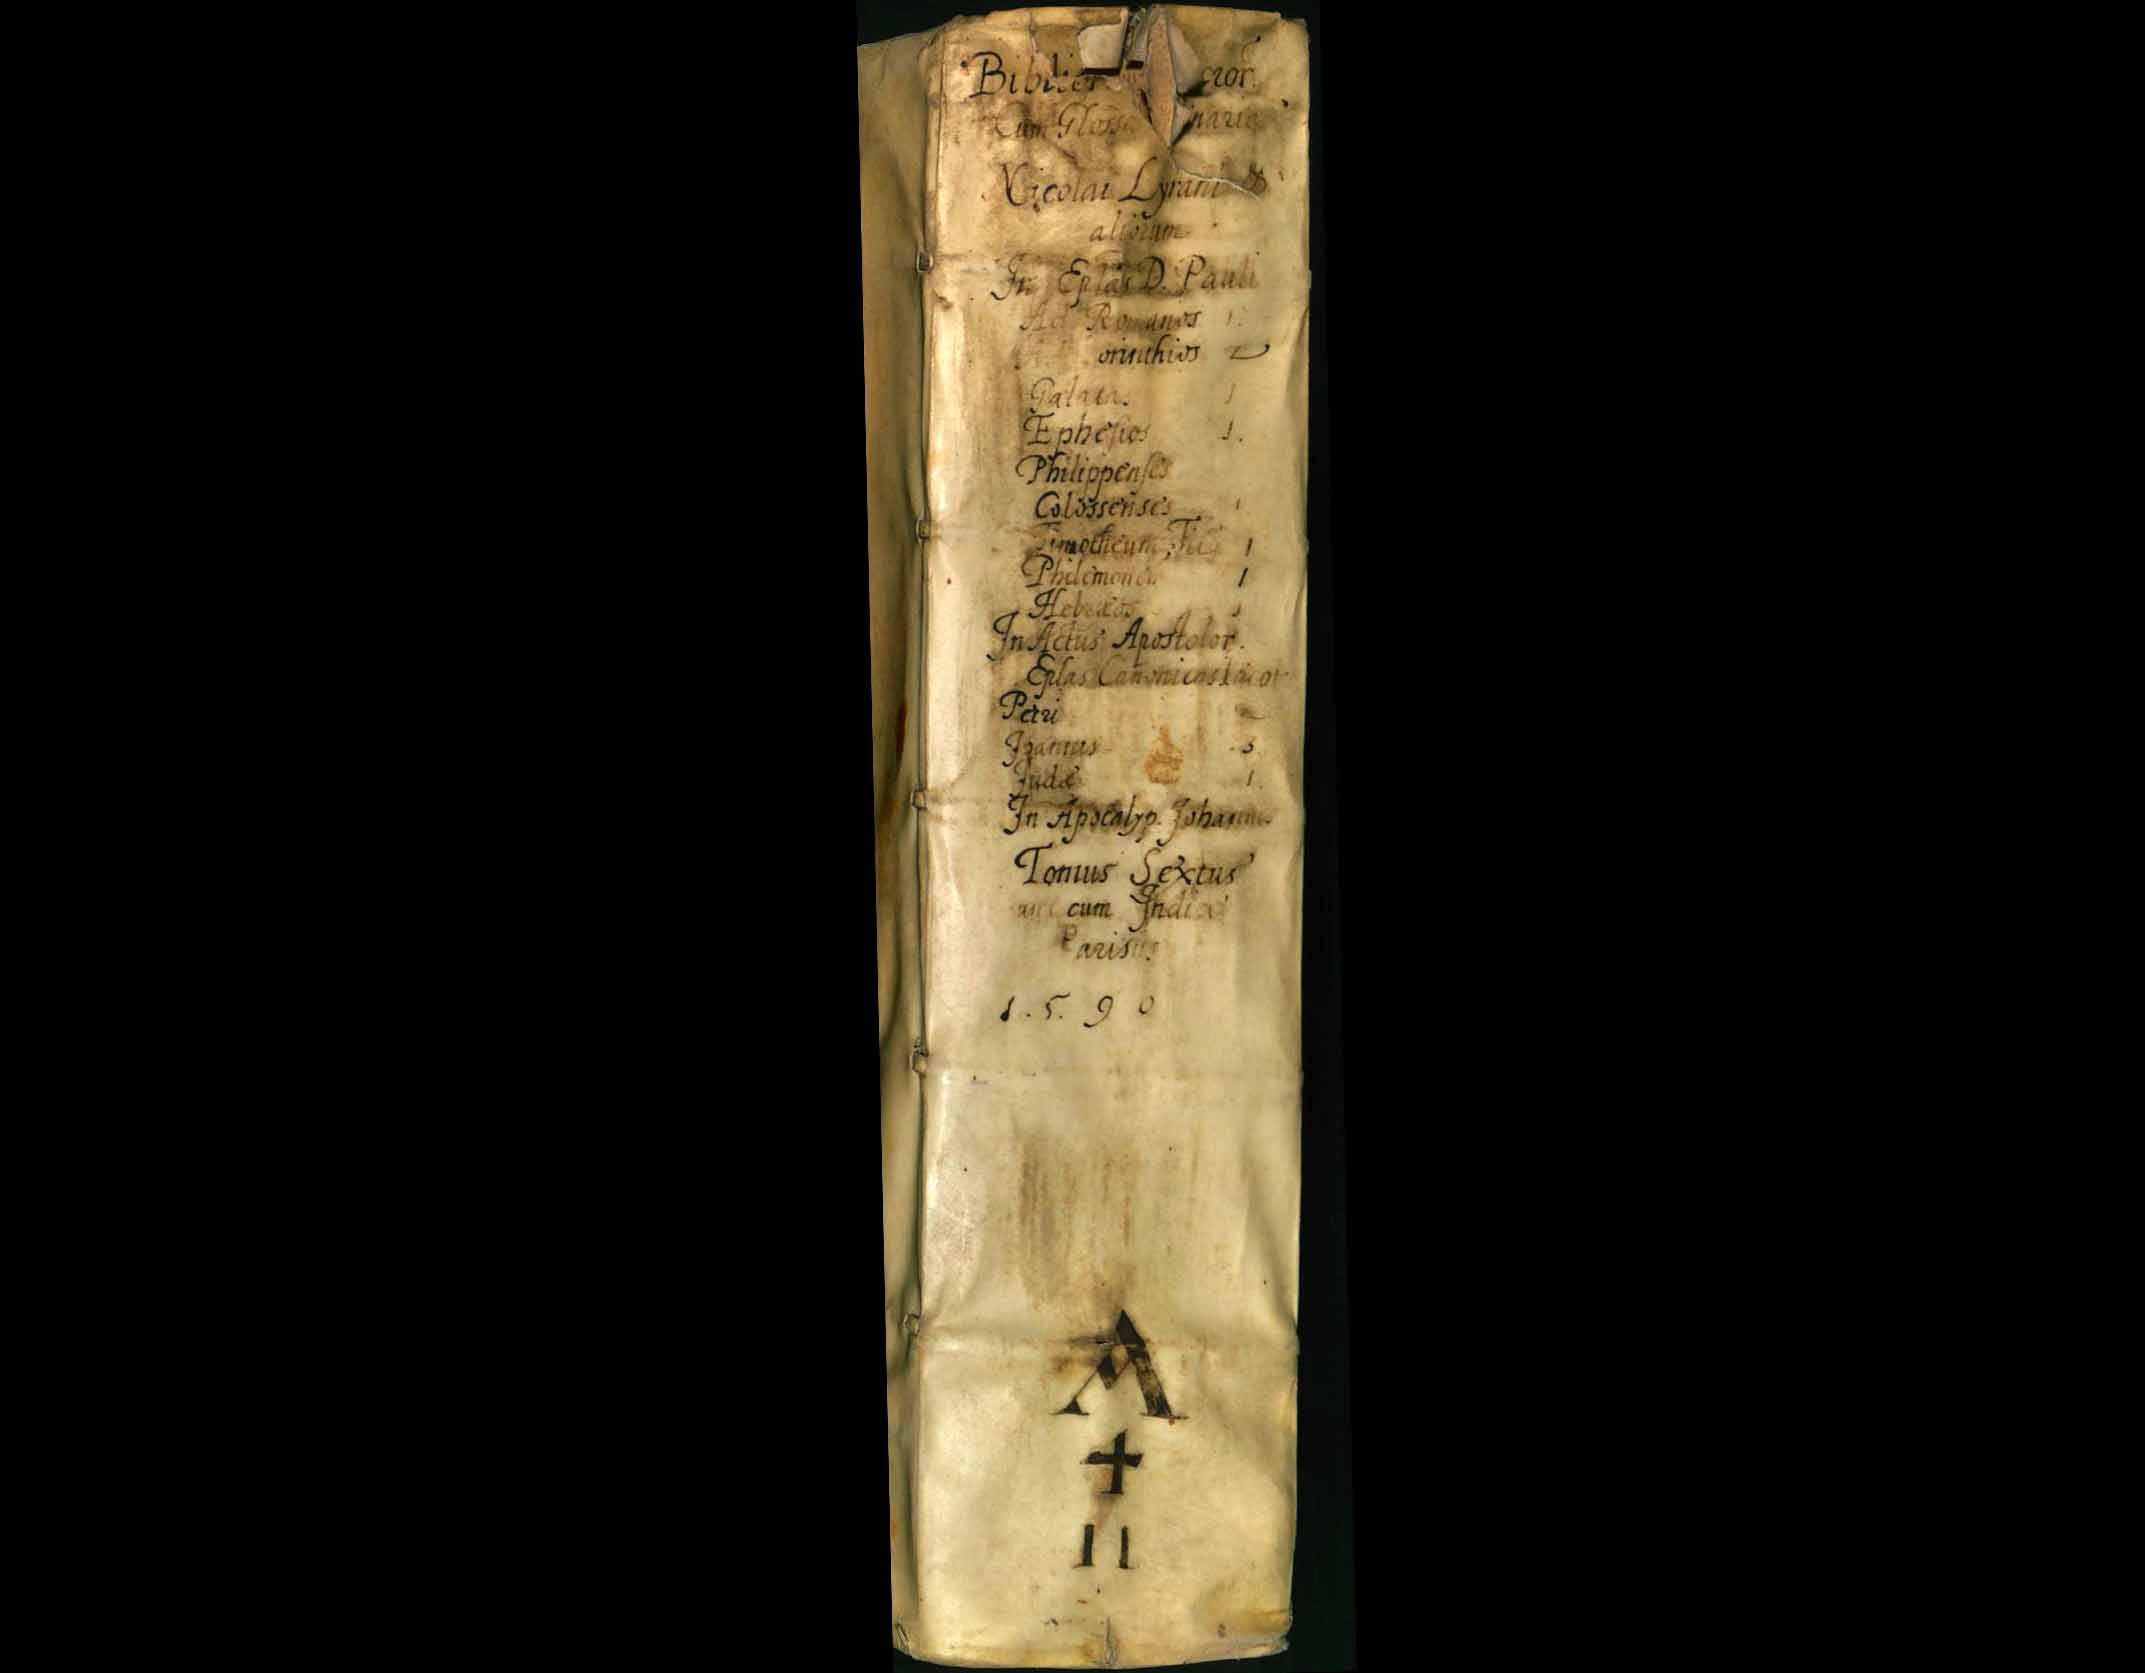 Biblior cror.
Cum Glossa naria
Nicolai Lyrani &
aliorum
In Eplas D. Pauli
Ad Romanos
orinthios 2
Galatas 1
Ephesios 1.
Philippenses
Colossenses 1
Timotheum, 1
Philemonem 1
Hebræos 1
In Actus Apostolor.
Eplas Canonicas Iacob
Petri 2
Joannis 3
Judæ 1.
In Apocalyp. Johannis
Tomus Sextus
cum Indice
Parisiis
1.5.90
A
+
11